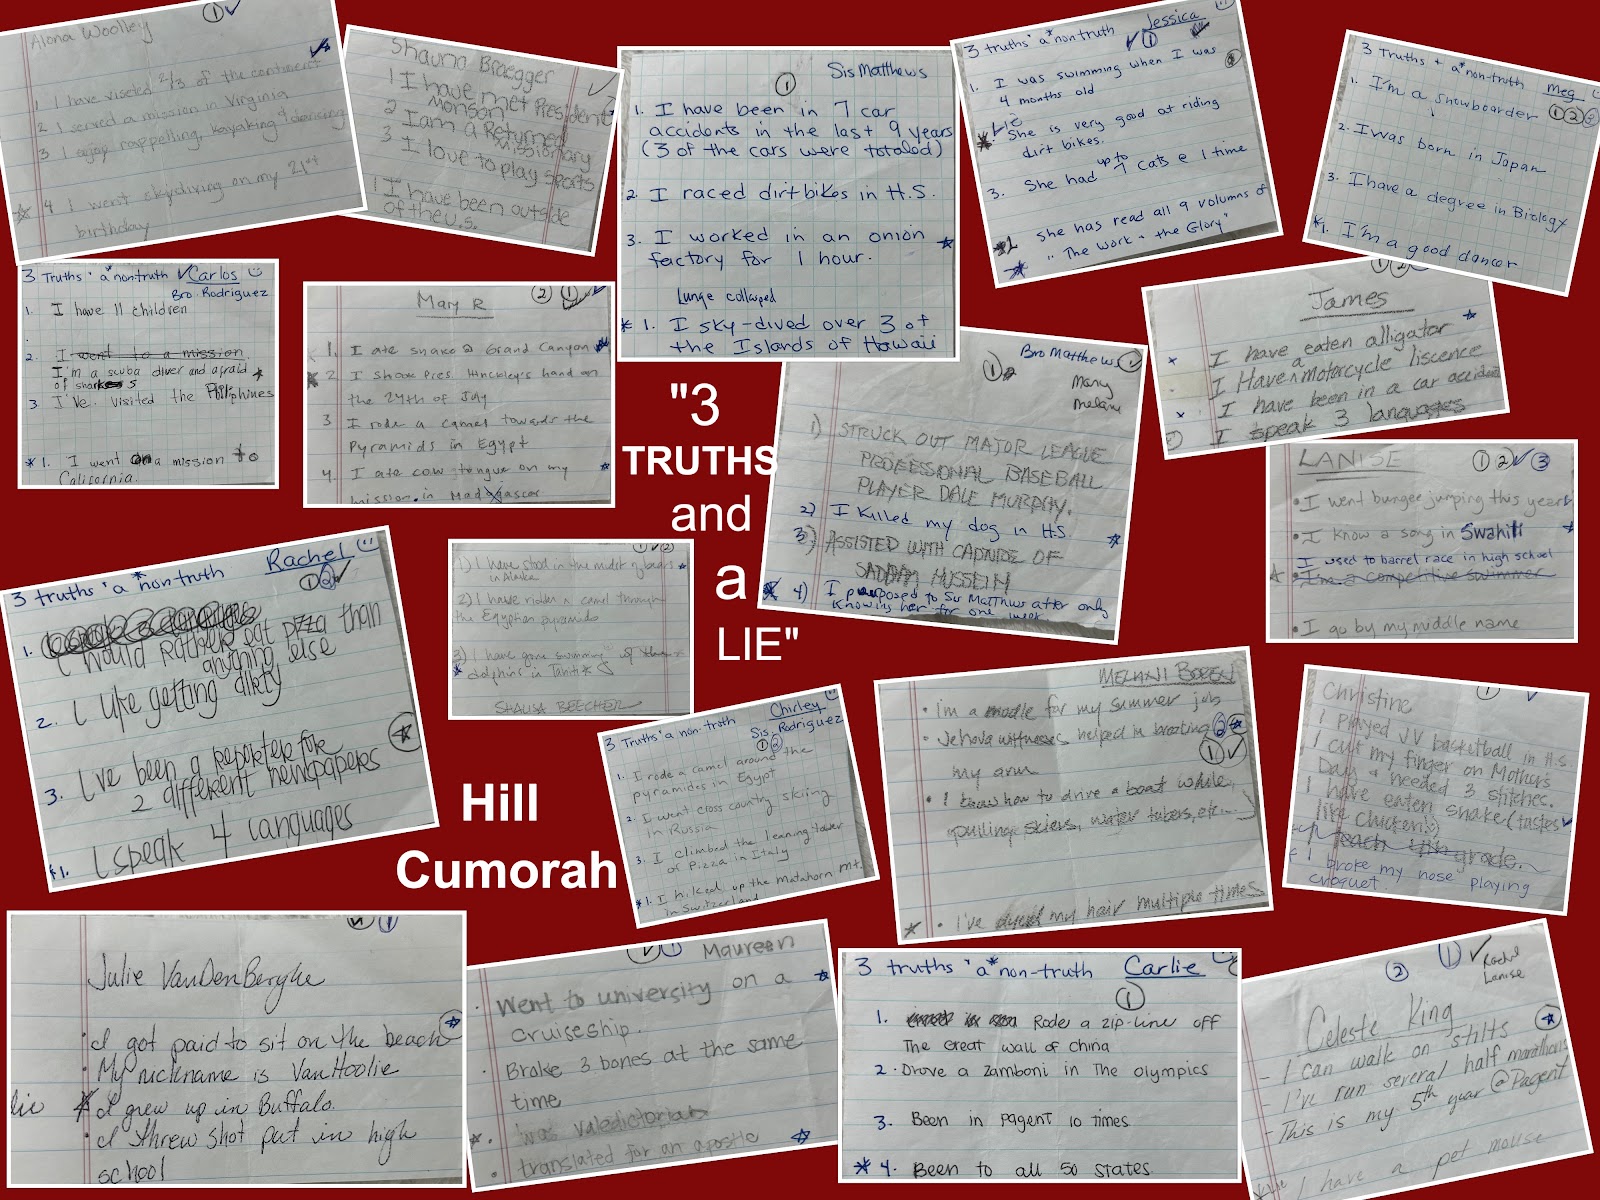 Alona Woolley
①✓
1 I have viseted 2/3 of the continent
2 I served a mission in Virginia
3 I enjoy rappelling, kayaking & dancing
4 I went skydiving on my 21st
birthday
Shauna Braegger
1 I have met President
Monson
2 I am a Returned
Missionary
3 I love to play sports
1 I have been outside
of the U.S.
① Sis Matthews
1. I have been in 7 car
accidents in the last 9 years
(3 of the cars were totaled)
2. I raced dirtbikes in H.S.
3. I worked in an onion
factory for 1 hour.
Lunge collapsed
* 1. I sky-dived over 3 of
the Islands of Hawaii
3 truths 'a* nontruth Jessica
✓①
1. I was swimming when I was
4 months old
Lie
She is very good at riding
dirt bikes.
up to
3. She had 7 cats @ 1 time
She has read all 9 volumes of
"The Work + the Glory"
3 Truths + a* non-truth Meg
①②③
1. I'm a snowboarder
2. I was born in Japan
3. I have a degree in Biology
*1. I'm a good dancer
3 Truths 'a* nontruth ✓Carlos
Bro. Rodriguez
1. I have 11 children
2. I went to a mission
I'm a scuba diver and afraid
of sharks
3 I've visited the Philiphines
*1. I went on a mission to
California.
Mary R
②①✓
1. I ate snake @ Grand Canyon
2 I shook Pres. Hinckley's hand on
the 24th of July
3 I rode a camel towards the
Pyramids in Egypt
4. I ate cow tongue on my
mission in Madagascar
"3
TRUTHS
and
a
LIE"
Bro Matthews ✓
①2
Mary
Melani
1) STRUCK OUT MAJOR LEAGUE
PROFESSIONAL BASEBALL
PLAYER DALE MURPHY.
2) I killed my dog in H.S.
3) ASSISTED WITH CAPNIDE OF
SADDAM HUSSEIN
4) I proposed to Sis Matthews after only
knowing her for one week
James
I have eaten alligator
I Have a motorcycle liscence
I have been in a car accident
I speak 3 languages
LANISE ①②✓③
• I went bungee jumping this year
• I know a song in Swahili
I used to barrel race in high school
• I'm a competitive swimmer
• I go by my middle name
3 truths 'a* nontruth Rachel
①②✓
1. I would rather eat pizza than
anything else
2. I like getting dirty
3. I've been a reporter for
2 different newspapers
*1. I speak 4 languages
1) I have stood in the midst of bears
in Alaska
2) I have ridden a camel through
the Egyptian pyramids
3) I have gone swimming
dolphins in Tahiti
SHAUSA BEECHER
3 Truths 'a non-truth Chirley
Sis. Rodriguez
①②
1. I rode a camel around the
pyramides in Egypt
2. I went cross country skiing
in Russia
3. I climbed the leaning tower
of Pizza in Italy
*1. I hiked up the Matahorn mt.
in Switzerland
MELANI BOREN
• I'm a modle for my summer job
• Jehova witnesses helped in breaking
my arm
①✓
• I know how to drive a boat while
pulling skiers, water tubers, etc...
• I've dyed my hair multiple times
Christine
I played JV basketball in H.S.
I cut my finger on Mother's
Day & needed 3 stitches.
I have eaten snake (tastes
like chicken)
I teach 4th grade.
I broke my nose playing
croquet.
Hill
Cumorah
Julie VanDenBerghe
• I got paid to sit on the beach
• My nickname is VanHoolie
lie * I grew up in Buffalo.
• I threw shot put in high
school
Maureen
• Went to university on a
cruiseship.
• Broke 3 bones at the same
time
• was valedictorian
• translated for an apostle
3 truths 'a* non-truth Carlie
①
1. Rode a zip-line off
The Great Wall of China
2. Drove a Zamboni in The Olympics
3. Been in Pagent 10 times
*4. Been to all 50 states
② ①✓
Rachel
Lanise
Celeste King
- I can walk on stilts
- I've run several half marathons
- This is my 5th year @ Pagent
I have a pet mouse